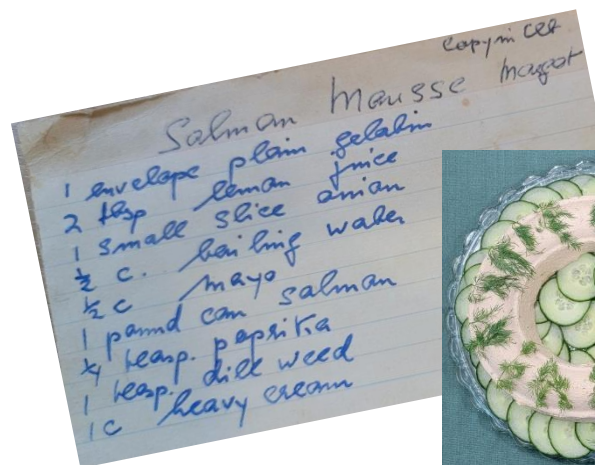 Copy in CCR
Salmon Mousse Margot
1 envelope plain gelatin
2 tbsp lemon juice
1 small slice onion
½ c. boiling water
½ c mayo
1 pound can salmon
¼ teasp. paprika
1 teasp. dill weed
1 c heavy cream